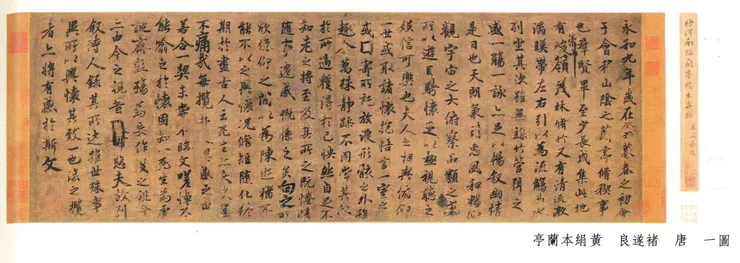 褚河南臨蘭亭絹本真跡
永和九年歲在癸丑暮春之初會
于會稽山陰之蘭亭脩稧事
也群賢畢至少長咸集此地
有崇山峻嶺茂林脩竹又有清流激
湍暎帶左右引以為流觴曲水
列坐其次雖無絲竹管弦之
盛一觴一詠亦足以暢敘幽情
是日也天朗氣清惠風和暢仰
觀宇宙之大俯察品類之盛
所以遊目騁懷足以極視聽之
娛信可樂也夫人之相與俯仰
一世或取諸懷抱悟言一室之內
或因寄所託放浪形骸之外雖
趣舍萬殊靜躁不同當其欣
於所遇暫得於己怏然自足不
知老之將至及其所之既惓情
隨事遷感慨係之矣向之所
欣俛仰之間以為陳迹猶不
能不以之興懷況脩短隨化終
期於盡古人云死生亦大矣豈
不痛哉每攬昔人興感之由
若合一契未嘗不臨文嗟悼不
能喻之於懷固知一死生為虛
誕齊彭殤為妄作後之視今
亦由今之視昔悲夫故列
敘時人錄其所述雖世殊事
異所以興懷其致一也後之攬
者亦將有感於斯文
圖一 唐 褚遂良 黃絹本蘭亭